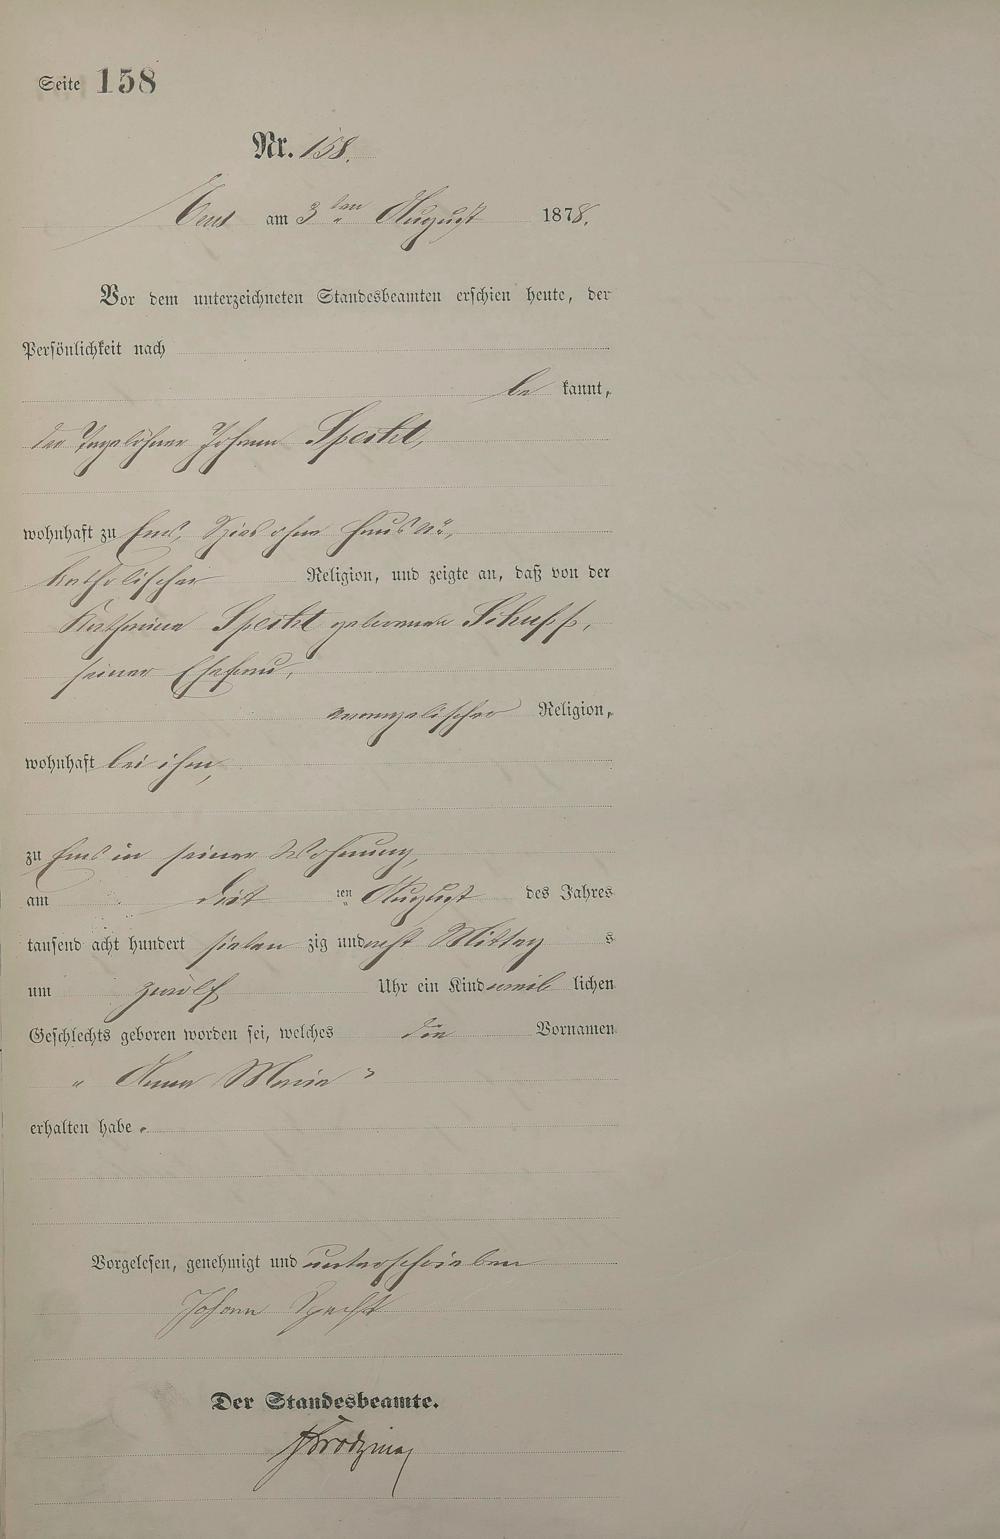 Seite 158
Nr. 158.
Ems am 3ten August 1878.
Vor dem unterzeichneten Standesbeamten erschien heute, der
Persönlichkeit nach
be kannt,
der Tagelöhner Johann Specht,
wohnhaft zu Ems, Spieß ohne Haus No,
katholischer Religion, und zeigte an, daß von der
Katharina Specht geborenen Schupp,
seiner Ehefrau,
evangelischer Religion,
wohnhaft bei ihm,
zu Ems in seiner Wohnung,
am drit ten August des Jahres
tausend acht hundert sieben zig und acht Mittag s
um zwölf Uhr ein Kind weib lichen
Geschlechts geboren worden sei, welches die Vornamen
„ Anna Maria "
erhalten habe.
Vorgelesen, genehmigt und unterschrieben
Johann Specht
Der Standesbeamte.